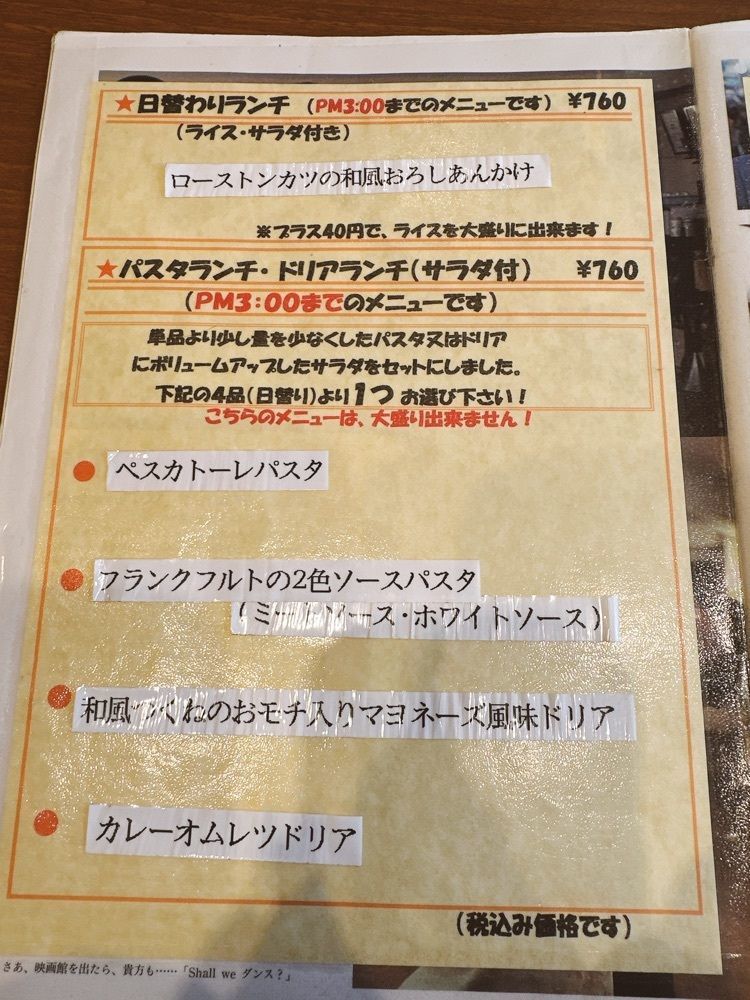 ★日替わりランチ (PM3:00までのメニューです) ¥760
(ライス・サラダ付き)
ローストンカツの和風おろしあんかけ
※プラス40円で、ライスを大盛りに出来ます!
★パスタランチ・ドリアランチ(サラダ付) ¥760
(PM3:00までのメニューです)
単品より少し量を少なくしたパスタ又はドリア
にボリュームアップしたサラダをセットにしました。
下記の4品(日替り)より1つお選び下さい!
こちらのメニューは、大盛り出来ません!
●ペスカトーレパスタ
●フランクフルトの2色ソースパスタ
(ミートソース・ホワイトソース)
●和風つくねのおモチ入りマヨネーズ風味ドリア
●カレーオムレツドリア
(税込み価格です)
さあ、映画館を出たら、貴方も……「Shall we ダンス?」